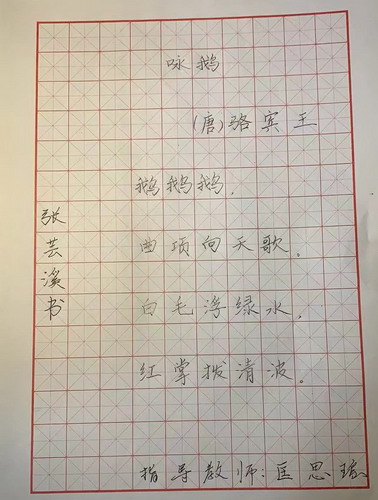 咏鹅
(唐)骆宾王
鹅鹅鹅,
曲项向天歌。
白毛浮绿水,
红掌拨清波。
张芸溪书
指导教师:匡思瑶